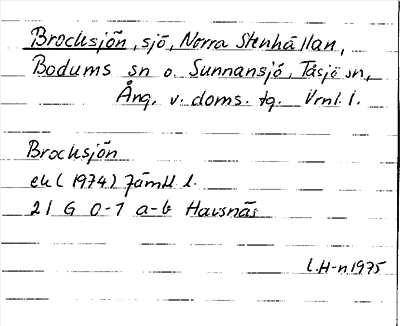 Brocksjön, sjö, Norra Stenhällan,
Bodums sn o. Sunnansjö, Tåsjö sn,
Ång. v. doms. tg. Vrnl. l.
Brocksjön
ek (1974) Jämtl l.
21 G 0-1 a-b Havsnäs
L.H-n 1975